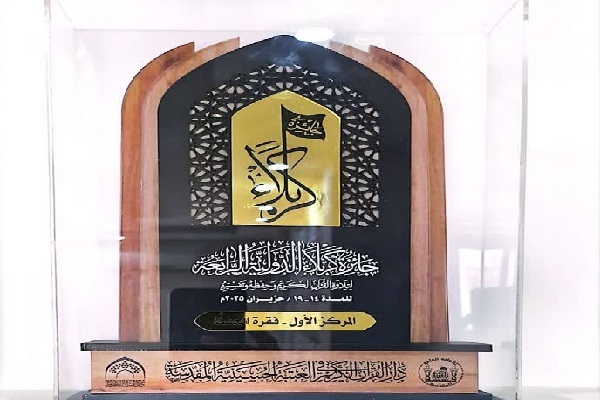 جائزة
كربلاء
جائزة كربلاء الدولية الرابعة
لتلاوة القرآن الكريم وحفظه وتفسيره
للمدة ١٤ - ١٩ / حزيران ٢٠٢٥م
المركز الأول - فقرة
دار القرآن الكريم في العتبة الحسينية المقدسة